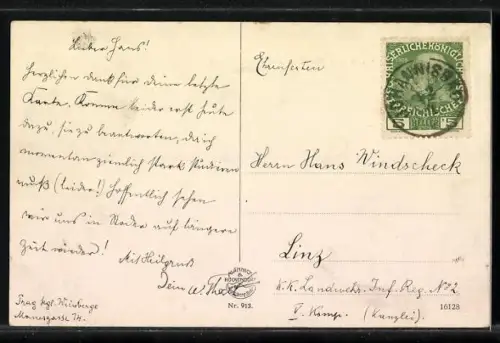 Lieber Hans!
Herzlichen Dank für deine letzte
Karte. Komme leider erst heute
dazu, sie zu beantworten, da ich
momentan ziemlich stark studieren
muß (leider!) Hoffentlich sehen
wir uns in auf längere
Zeit wieder!
Mit Heilgruß
Dein
Prag Kgl. Weinberge
Manesgasse 74.
Herrn Hans Windscheck
Linz
K.K. Landwehr. Inf. Reg. No 2
V. Komp. (Kanzlei)
Nr. 913.
16128
KAISERLICHE KÖNIGLICHE
5 5